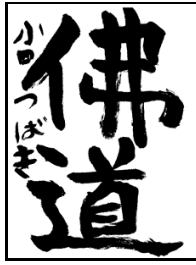 佛道
小四 つばき